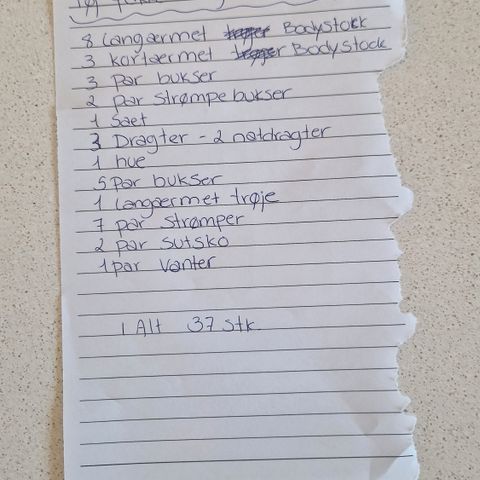 8 Langærmet Bodystokk
3 kortærmet Bodystock
3 par bukser
2 par strømpebukser
1 sæt
3 Dragter - 2 natdragter
1 hue
5 par bukser
1 Langærmet trøje
7 par strømper
2 par sutsko
1 par vanter
I Alt 37 stk.